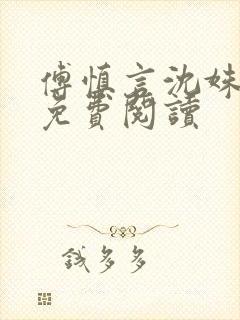 傅慎言沈姝
免費閱讀
錢多多